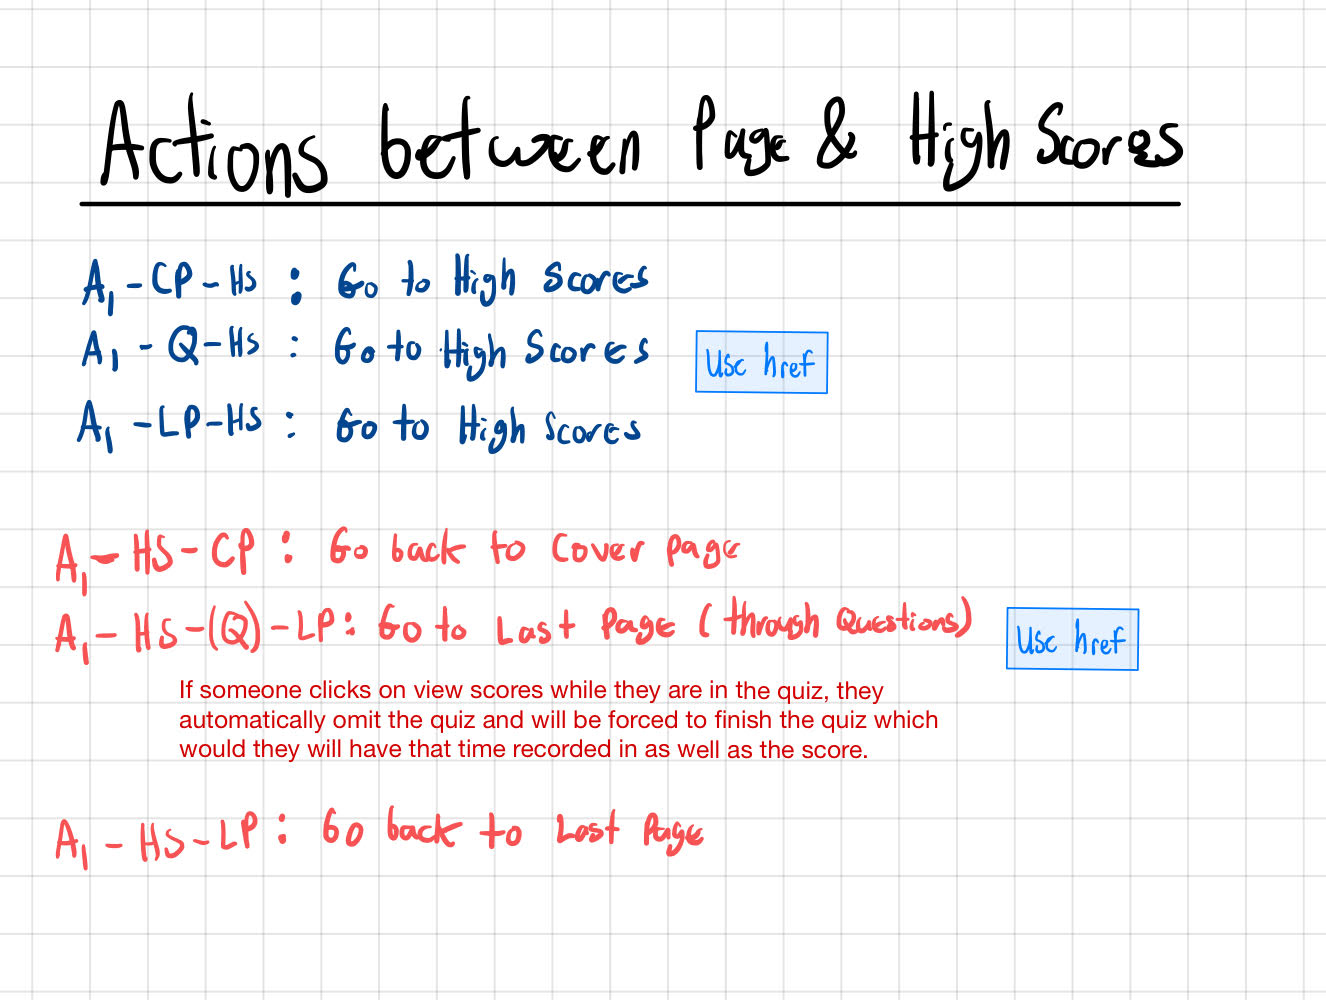 Actions between Page & High Scores
A1-CP-HS : Go to High Scores
A1-Q-HS : Go to High Scores
Use href
A1-LP-HS : Go to High Scores
A1-HS-CP : Go back to Cover page
A1-HS-(Q)-LP: Go to Last Page (through Questions)
Use href
If someone clicks on view scores while they are in the quiz, they
automatically omit the quiz and will be forced to finish the quiz which
would they will have that time recorded in as well as the score.
A1-HS-LP : Go back to Last Page